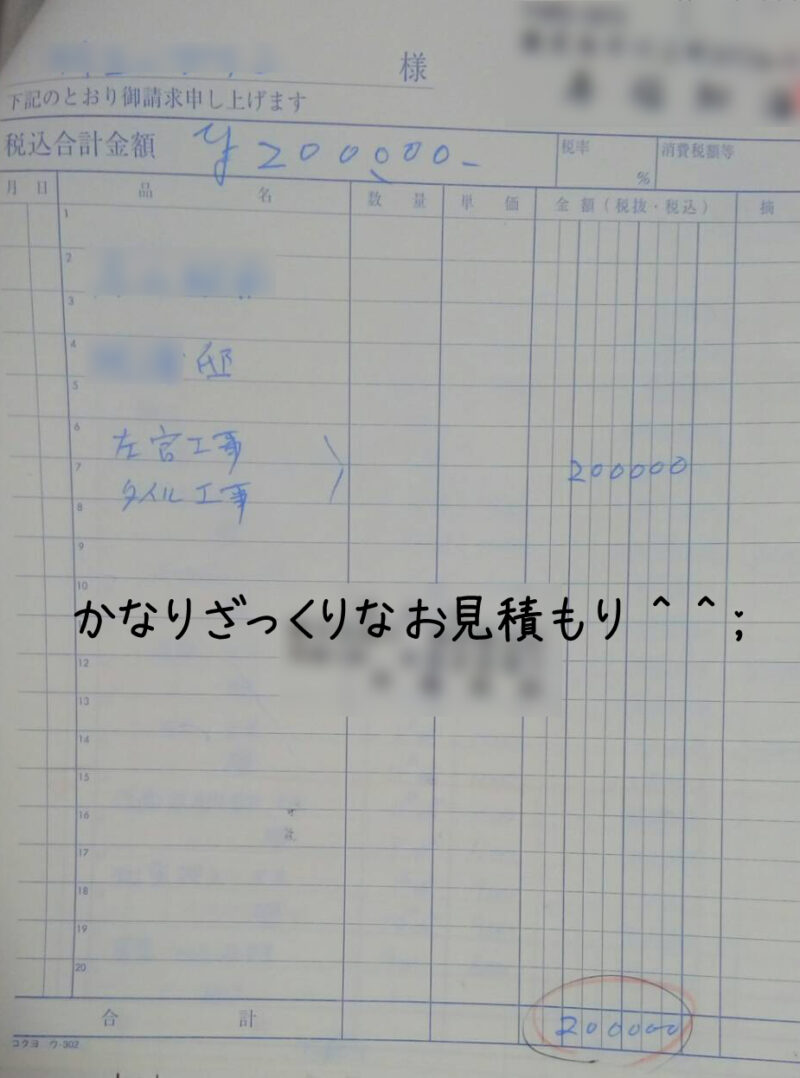 様
下記のとおり御請求申し上げます
税込合計金額 ¥200,000-
税率 % 消費税額等
月 日 品 名 数 量 単 価 金 額 (税抜・税込) 摘
1
2
3
4
邸
5
6
左官工事
7
200000
タイル工事
8
9
10
かなりざっくりなお見積もり ^ ^;
12
13
14
15
16
17
18
19
20
合 計 200000
コクヨ ウ-302